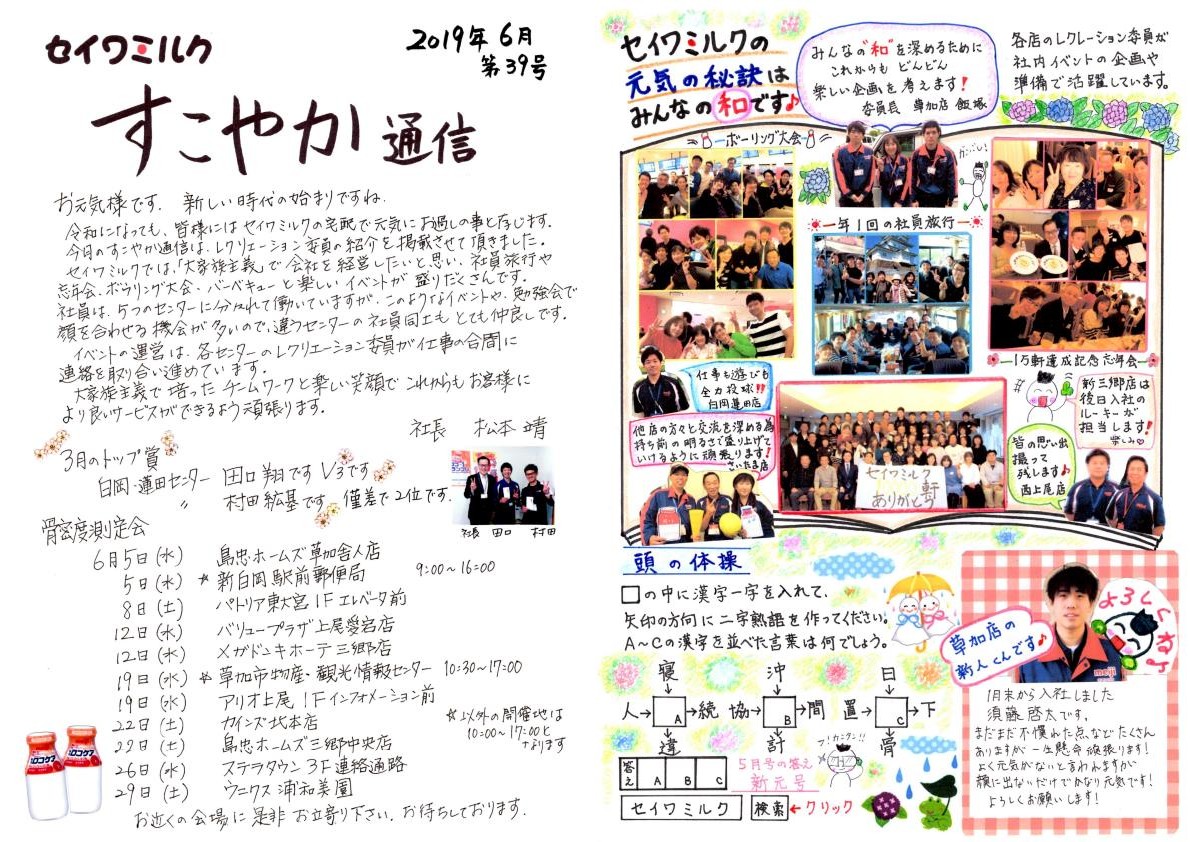 セイワミルク
2019年6月
第39号
すこやか通信
お元気様です。新しい時代の始まりですね。
令和になっても、皆様にはセイワミルクの宅配で元気にお過しの事と存じます。
今月のすこやか通信は、レクリエーション委員の紹介を掲載させて頂きました。
セイワミルクでは、「大家族主義」で会社を経営したいと思い、社員旅行や
忘年会、ボウリング大会、バーベキューと楽しいイベントが盛りだくさんです。
社員は、5つのセンターに分かれて働いていますが、このようなイベントや、勉強会で
顔を合わせる機会が多いので、違うセンターの社員同士もとても仲良しです。
イベントの運営は、各センターのレクリエーション委員が仕事の合間に
連絡を取り合い進めています。
大家族主義で培ったチームワークと楽しい笑顔でこれからもお客様に
より良いサービスができるよう頑張ります。
社長 松本 靖
3月のトップ賞
白岡・蓮田センター 田口 翔です V3です
〃 村田 紘基です 僅差で2位です。
社長 田口 村田
骨密度測定会
6月5日(水) 島忠ホームズ草加舎人店
5日(水) ☆新白岡駅前郵便局 9:00〜16:00
8日(土) パトリア東大宮1Fエレベータ前
12日(水) バリュープラザ上尾愛宕店
12日(水) メガドンキホーテ三郷店
19日(水) ☆草加市物産・観光情報センター 10:30〜17:00
19日(水) アリオ上尾 1Fインフォメーション前
22日(土) カインズ北本店
22日(土) 島忠ホームズ三郷中央店
26日(水) ステラタウン3F連絡通路
29日(土) ウニクス浦和美園
☆以外の開催地は
10:00〜17:00と
なります
お近くの会場に是非お立寄り下さい。お待ちしております。
セイワミルクの
元気の秘訣は
みんなの和です♪
みんなの"和"を深めるために
これからもどんどん
楽しい企画を考えます!
委員長 草加店 飯塚
各店のレクレーション委員が
社内イベントの企画や
準備で活躍しています。
ボーリング大会
ガンバレ!
一年1回の社員旅行
仕事も遊びも
全力投球!!
白岡蓮田店
1万軒達成記念忘年会
新三郷店は
後日入社の
ルーキーが
担当します!
楽しみ♡
他店の方々と交流を深める為
持ち前の明るさで盛り上げて
いけるように頑張ります!
さいたま店
皆の思い出
撮って
残します♪
西上尾店
セイワミルク
軒
ありがとう
頭の体操
□の中に漢字一字を入れて、
矢印の方向に二字熟語を作ってください。
A〜Cの漢字を並べた言葉は何でしょう。
寝 沖 日
人→A→続 協→B→間 置→C→下
違 計 骨
答え A B C
5月号の答え
新元号
セイワミルク 検索 ←クリック
よろしくね♪
草加店の
新人くんです♪
meiji
1月末から入社しました
須藤啓太です。
まだまだ不慣れた点などたくさん
ありますが一生懸命頑張ります!
よく元気がないと言われますが
顔に出ないだけでかなり元気です!
よろしくお願いします!